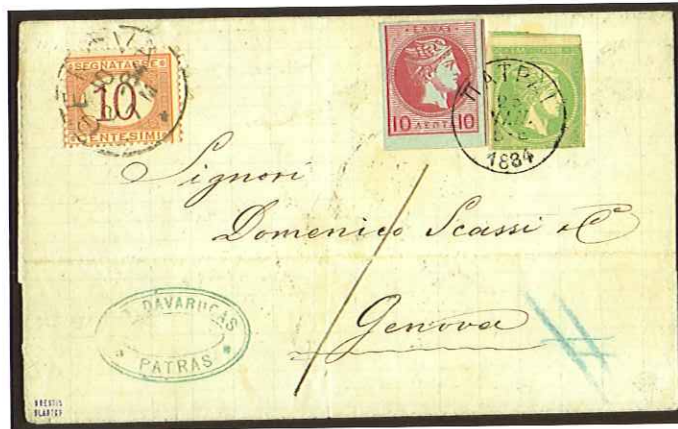 SEGNATASSE
10
CENTESIMI
ΕΛΛΑΣ
10 ΛΕΠΤΑ 10
ΠΑΤΡΑΙ
1884
Signori
Domenico Scassi & C
Genova
DAVARUCAS
PATRAS